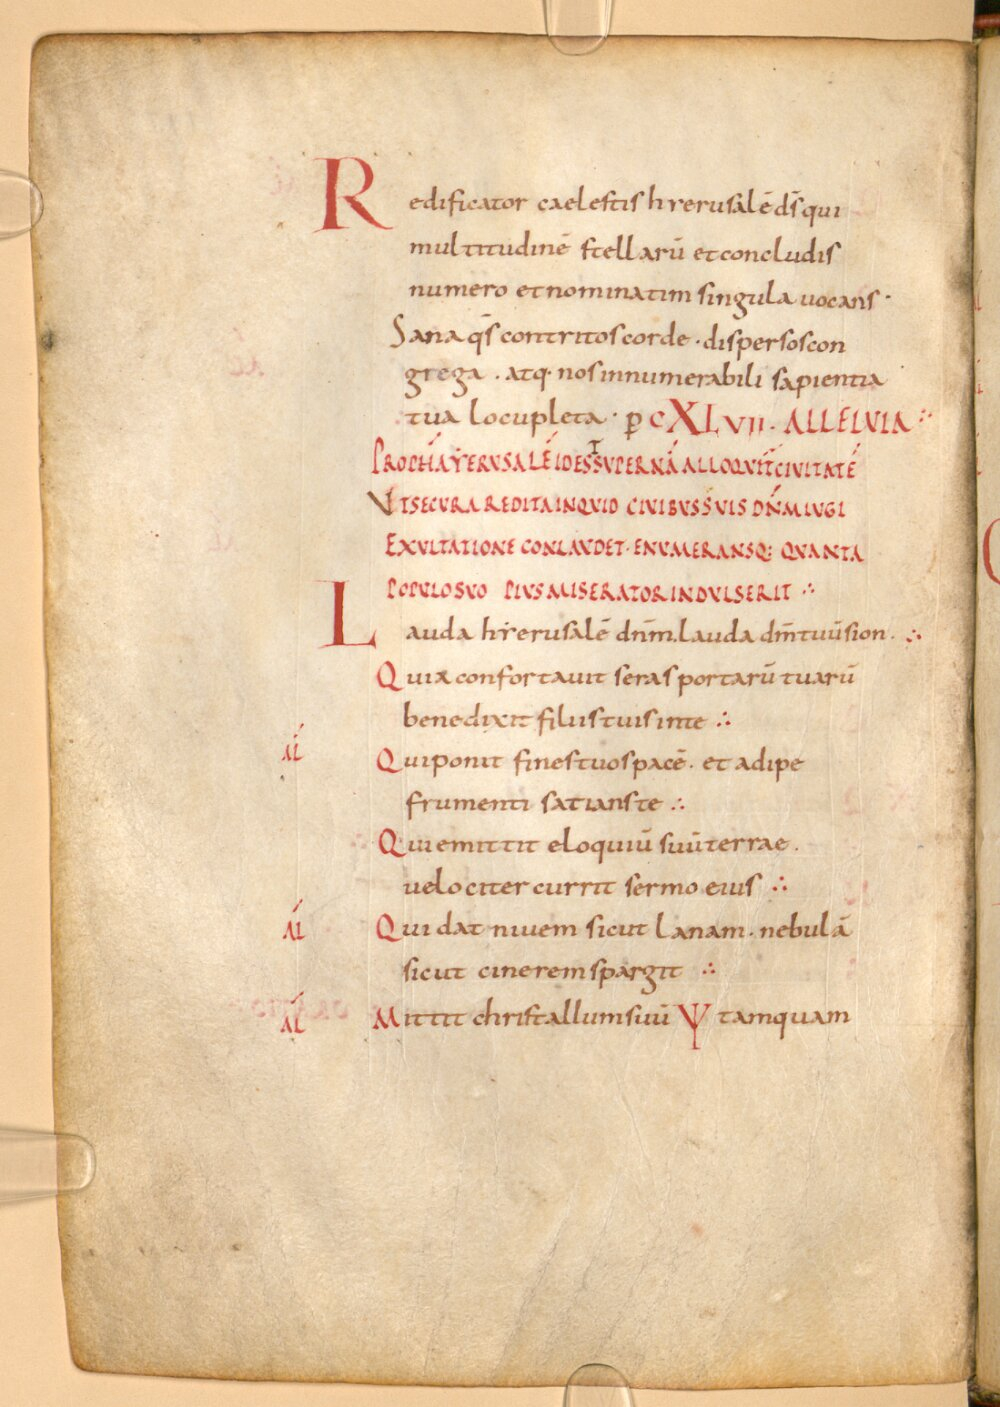 Redificator caelestis hyerusalē ds̄ qui
multitudinē stellarū et concludis
numero et nominatim singula uocans ·
Sana qs̄ contritos corde · dispersos con
grega · atq· nos innumerabili sapientia
tua locupleta · p̄ CXLVII · ALLELUIA
PROPHĀ YERUSALĒ ID EST SUPERNĀ ALLOQUIT CIVITATĒ
UT SECURA REDITA INQUID CIVIBUS SUIS DN̄M IUGI
EXULTATIONE CONLAUDET · ENUMERANSQ: QUANTA
POPULO SUO PIUS MISERATOR INDULSERIT ∴
Lauda hyerusalē dn̄m. lauda dm̄ tuū sion · ∴
Quia confortauit seras portarū tuarū
benedixit filiis tuis in te ∴
AL Qui ponit fines tuos pacē · et adipe
frumenti satians te ∴
Qui emittit eloquiū suū terrae ·
uelociter currit sermo eius ∴
AL Qui dat niuem sicut lanam · nebulā
sicut cinerem spargit ∴
AL Mittit christallum suū Ψ tamquam